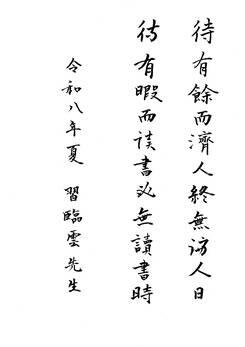 待有餘而濟人終無濟人日
待有暇而读書必無讀書時
令和八年夏 習臨雲先生